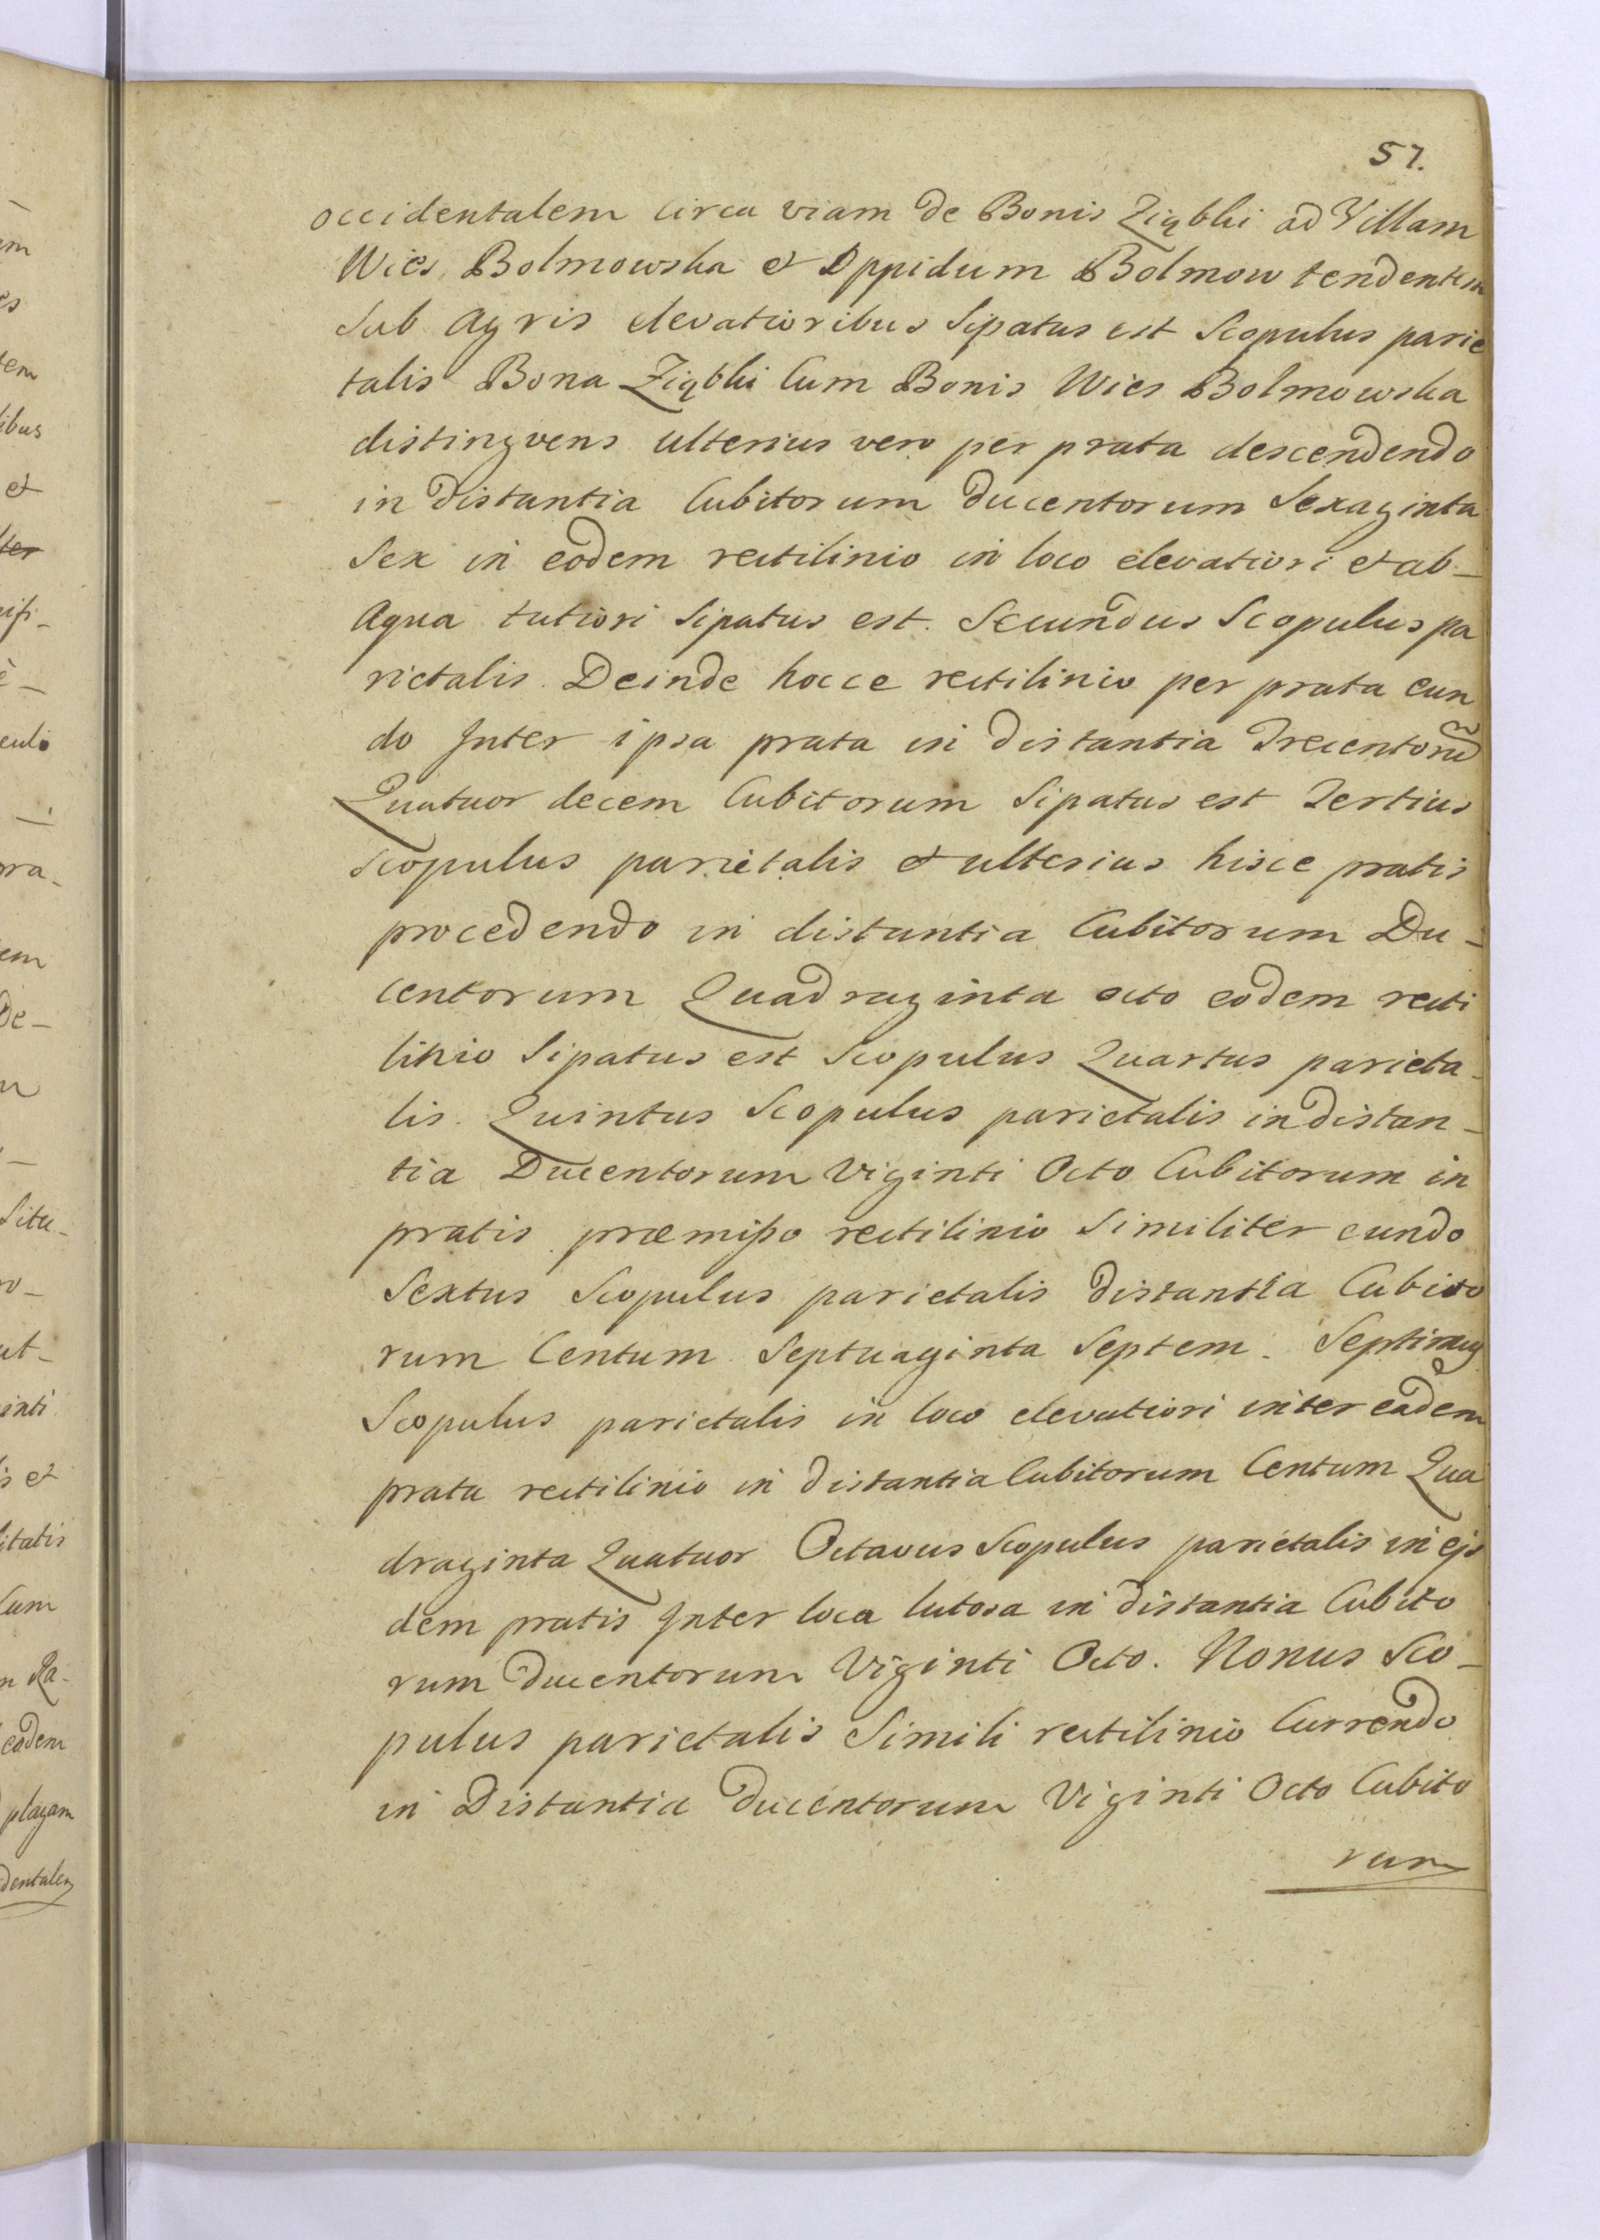 57.
occidentalem circa viam de Bonis Ziąbki ad Villam
Wies Bolmowska et Oppidum Bolmow tendentem
Sub Agris elevatioribus Sipatus est Scopulus parie
talis Bona Ziąbki Cum Bonis Wies Bolmowska
distingvens ulterius vero per prata descendendo
in distantia Cubitorum ducentorum Sexaginta
Sex in eodem rectilinio in loco elevatiori et ab-
Aqua tutiori Sipatus est. Secundus Scopulus pa
rietalis. Deinde hocce rectilinio per prata eun
do Inter ipsa prata in distantia Trecentorũ
Quatuor decem Cubitorum Sipatus est Tertius
Scopulus parietalis et ulterius hisce pratis
procedendo in distantia Cubitorum Du-
centorum Quadraginta octo eodem recti
linio Sipatus est Scopulus Quartus parieta-
lis. Quintus Scopulus parietalis in distan-
tia Ducentorum Viginti Octo Cubitorum in
pratis præmißo rectilinio Similiter eundo
Sextus Scopulus parietalis distantia Cubito
rum Centum Septuaginta Septem. Septimus
Scopulus parietalis in loco elevatiori inter eadem
prata rectilinio in distantia Cubitorum Centum Qua
draginta Quatuor Octavus Scopulus parietalis in ejs
dem pratis Inter loca lutosa in distantia Cubito
rum ducentorum Viginti Octo. Nonus Sco-
pulus parietalis Simili rectilinio Currendo
in Distantia ducentorum Viginti Octo Cubito
rum